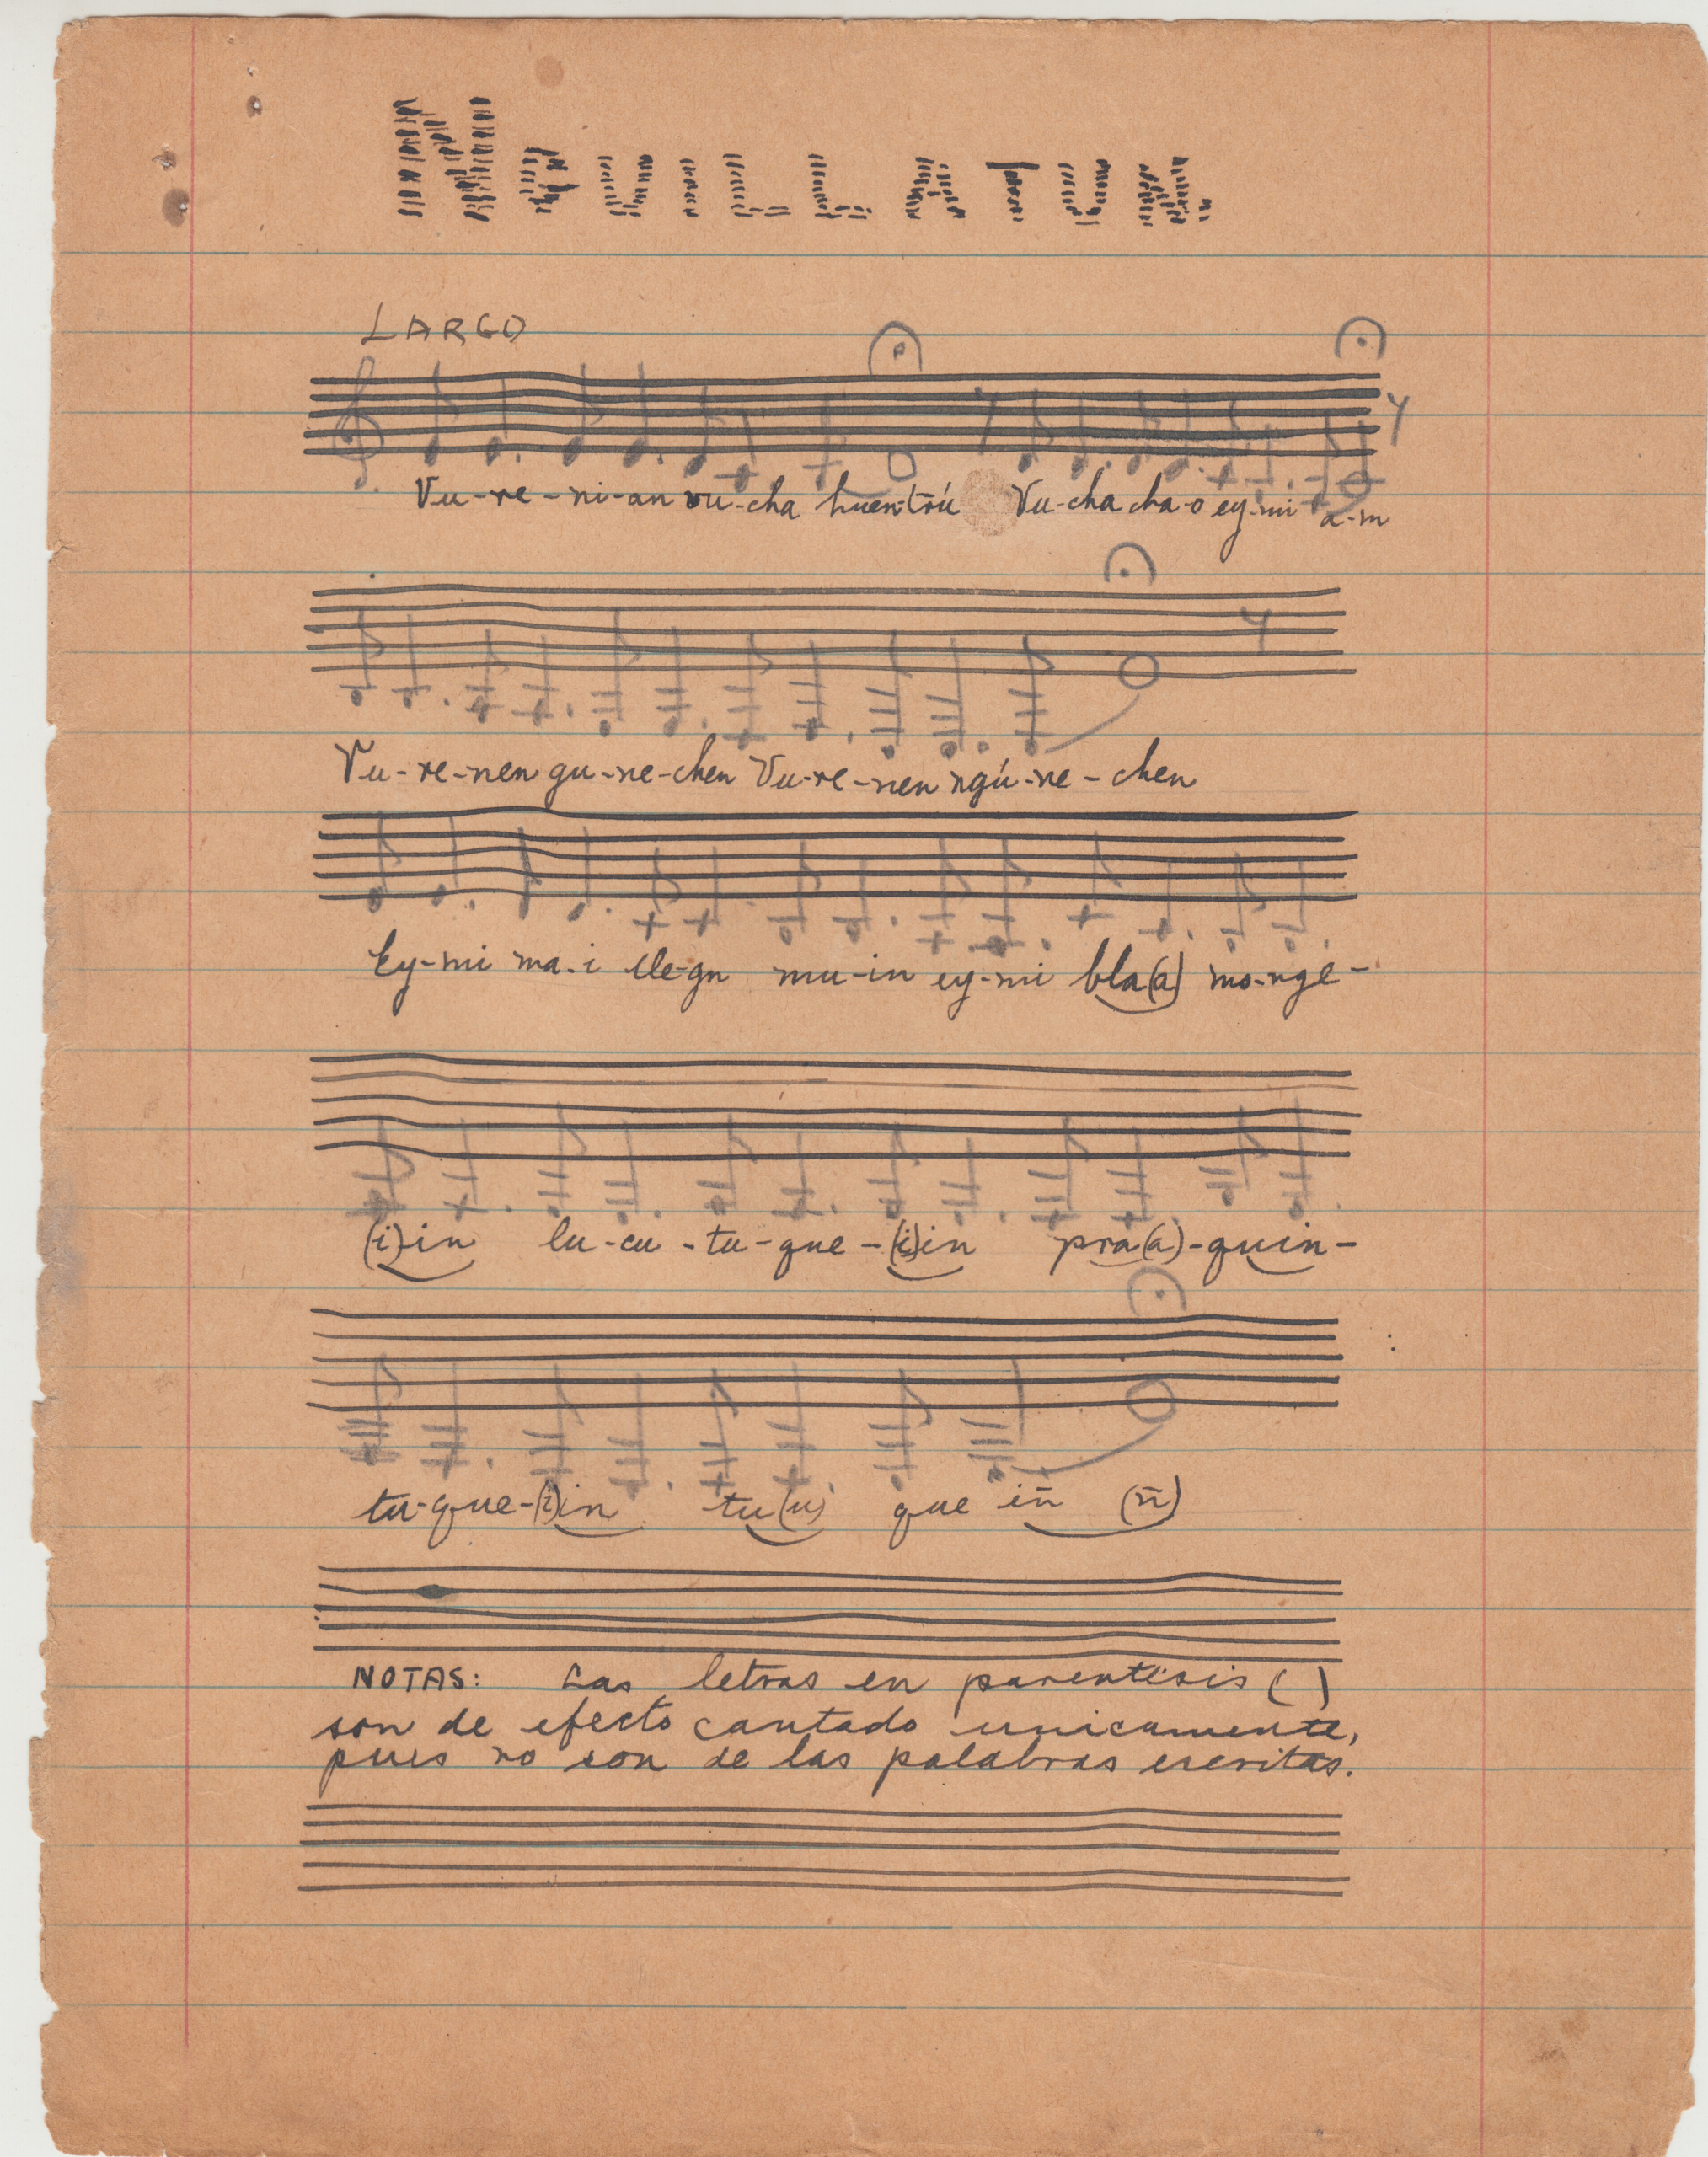 NGUILLATUN.
LARGO
Vu-re-ni-an vu-cha huen-trú Vu-cha cha-o ey-mi a-m
Vu-re-nen gu-ne-chen Vu-re-nen ngú-ne-chen
Ey-mi ma-i lle-gn mu-in ey-mi bla(a) mo-nge-
(i)-in lu-cu-tu-que-(i)in pra(a)-quin-
tu-que-(i)in tu(u) que in (n)
NOTAS: Las letras en parentesis ( )
son de efecto cantado unicamente,
pues no son de las palabras escritas.